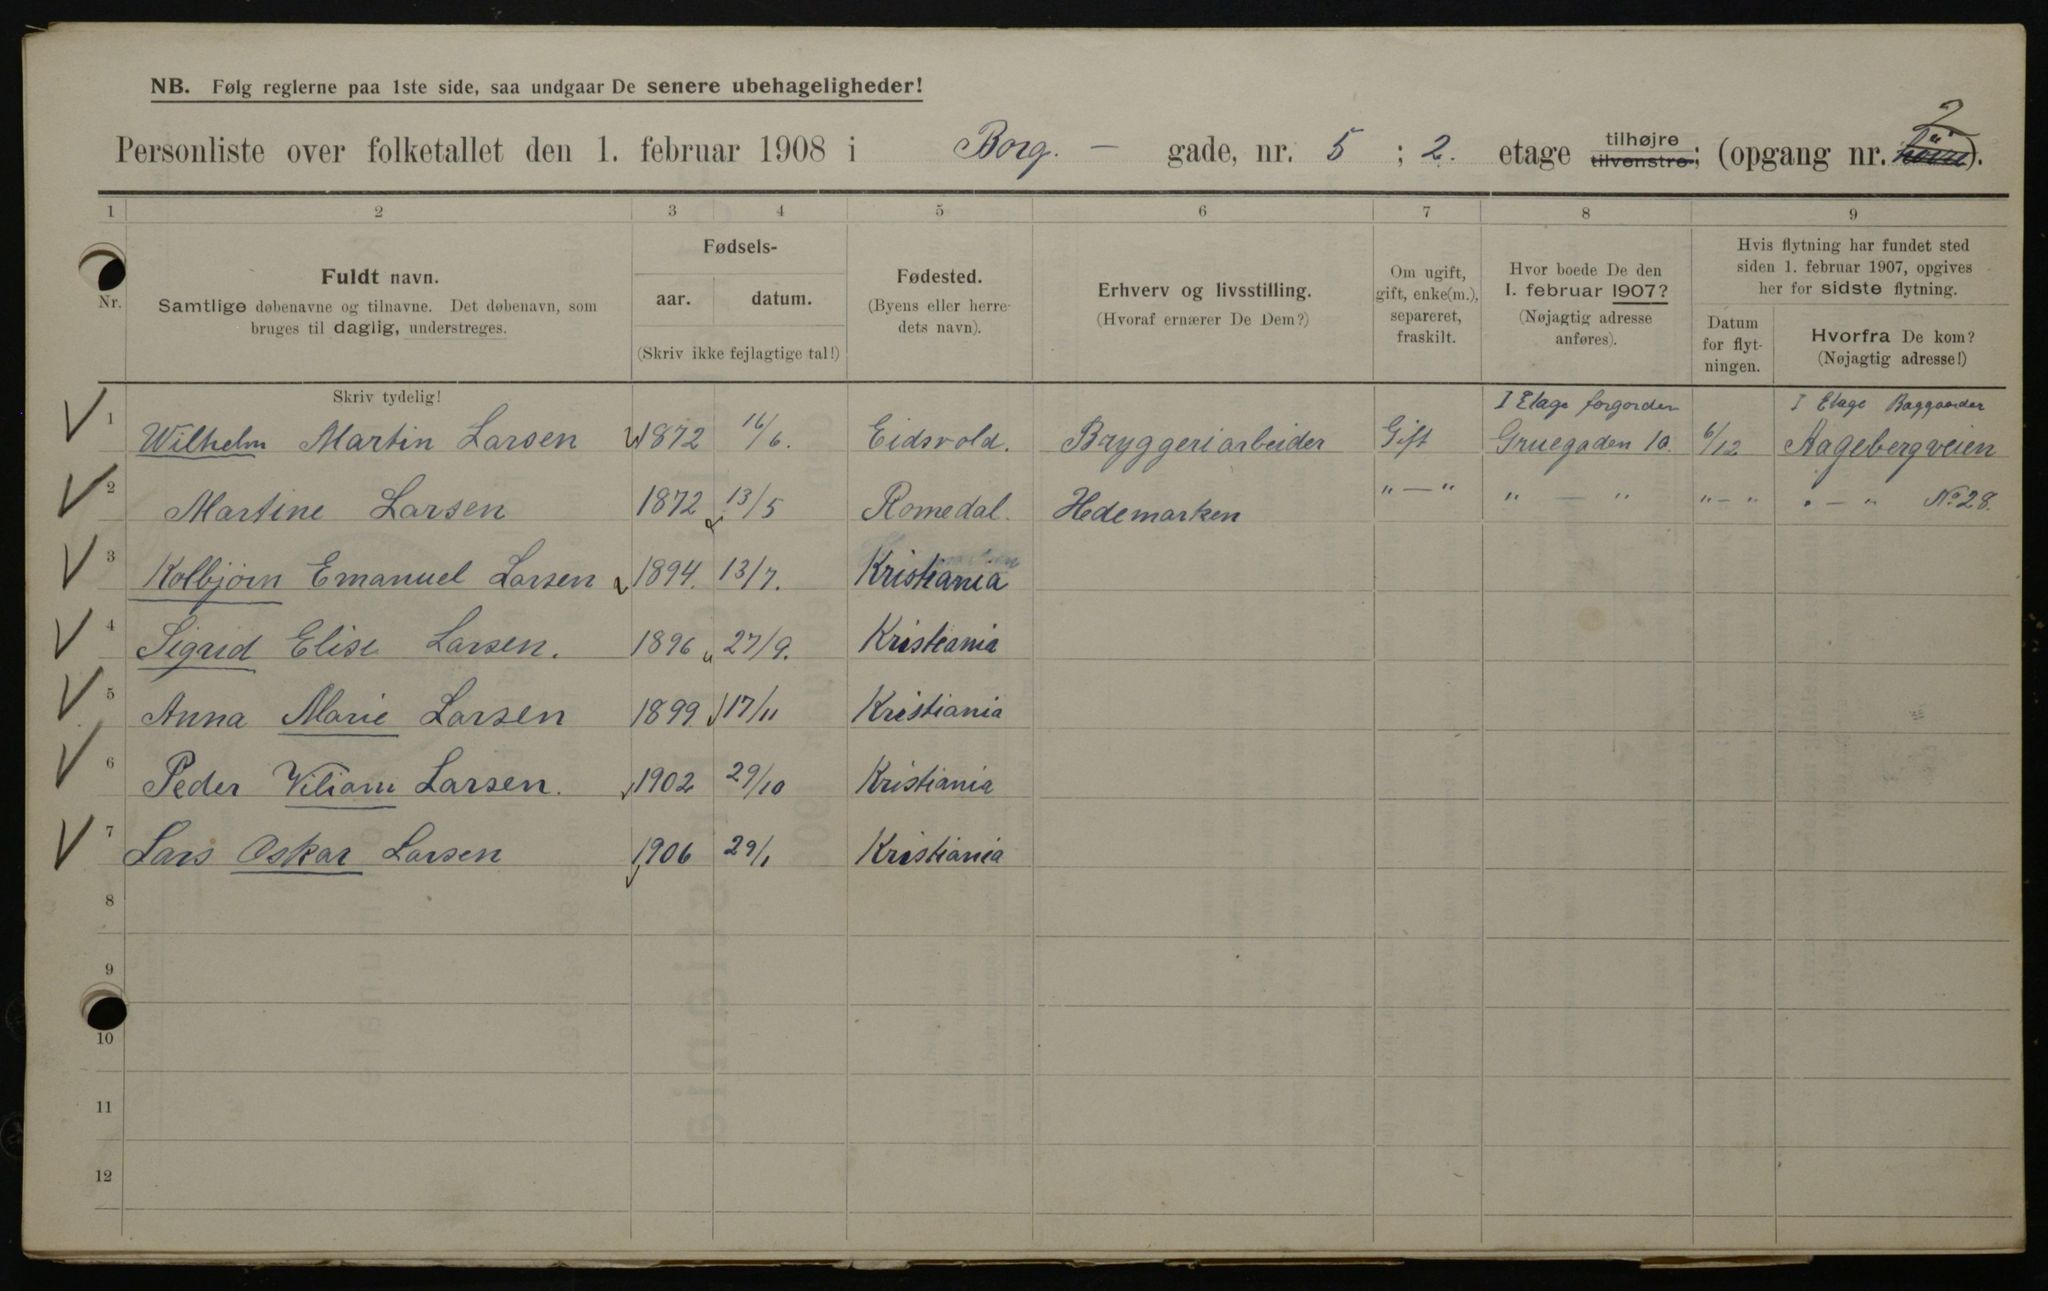 NB. Følg reglerne paa 1ste side, saa undgaar De senere ubehageligheder!
2
Personliste over folketallet den 1. februar 1908 i Borg. — gade, nr. 5 ; 2. etage tilhøjre tilvenstre; (opgang nr. ).
1 2 3 4 5 6 7 8 9
Nr.
Fuldt navn.
Samtlige døbenavne og tilnavne. Det døbenavn, som
bruges til daglig, understreges.
Fødsels-
aar. datum.
(Skriv ikke fejlagtige tal!)
Fødested.
(Byens eller herre-
dets navn).
Erhverv og livsstilling.
(Hvoraf ernærer De Dem?)
Om ugift,
gift, enke(m.),
separeret,
fraskilt.
Hvor boede De den
1. februar 1907?
(Nøjagtig adresse
anføres).
Hvis flytning har fundet sted
siden 1. februar 1907, opgives
her for sidste flytning.
Datum
for flyt-
ningen.
Hvorfra De kom?
(Nøjagtig adresse!)
Skriv tydelig!
I Etage forgorden I Etage Baggaarden
1 Wilhelm Martin Larsen 1872 16/6. Eidsvold. Bryggeriarbeider Gift Gruegaden 10. 6/12 Aagebergveien
2 Martine Larsen 1872 13/5 Romedal. Hedemarken " — " " — " " — " " — " No 28.
3 Kolbjörn Emanuel Larsen 1894. 13/7. Kristiania
4 Sigrid Elise Larsen. 1896 27/9. Kristiania
5 Anna Marie Larsen 1899 17/11 Kristiania
6 Peder Viliam Larsen. 1902 29/10 Kristiania
7 Lars Oskar Larsen 1906 29/1 Kristiania
8
9
10
11
12